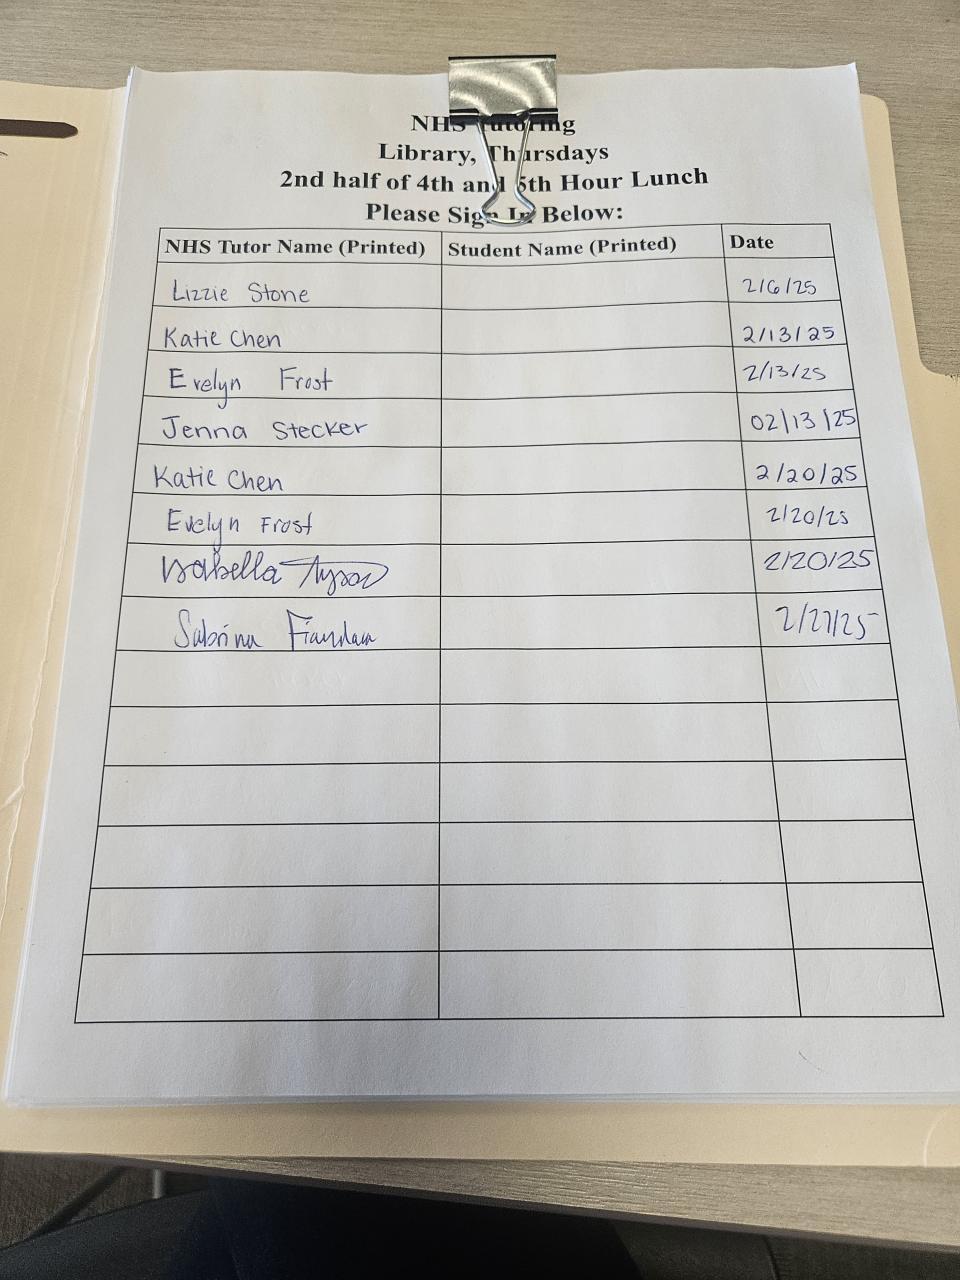 NHS Tutoring
Library, Thursdays
2nd half of 4th and 5th Hour Lunch
Please Sign In Below:
NHS Tutor Name (Printed) Student Name (Printed) Date
Lizzie Stone 2/6/25
Katie Chen 2/13/25
Evelyn Frost 2/13/25
Jenna Stecker 02/13/25
Katie Chen 2/20/25
Evelyn Frost 2/20/25
Isabella 2/20/25
Sabrina 2/27/25